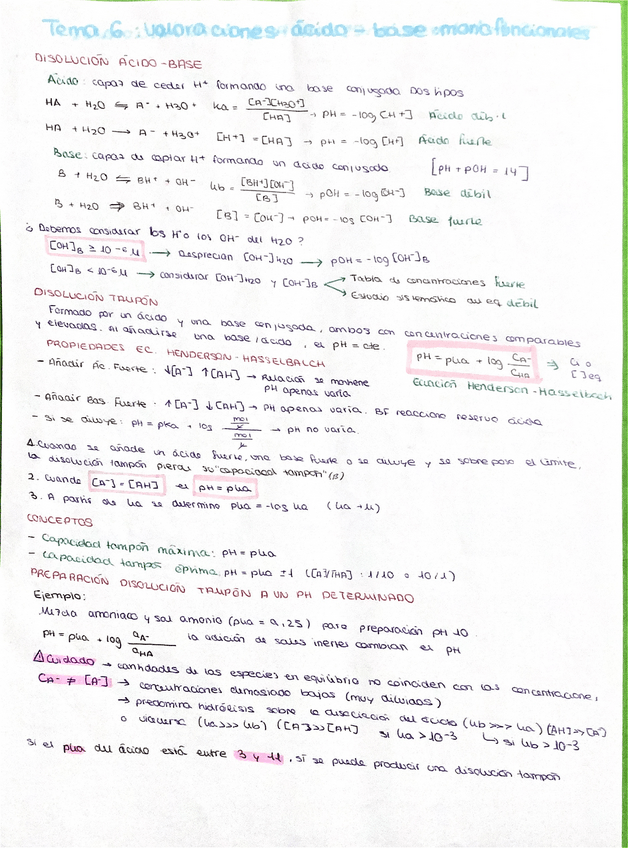 Tema 6: valoraciones ácido-base monofuncionales
DISOLUCIÓN ÁCIDO-BASE
Ácido: capaz de ceder H⁺ formando una base conjugada Dos tipos
HA + H2O ⇋ A⁻ + H3O⁺ Ka = [A⁻][H3O⁺]/[HA] → pH = -log [H⁺] Ácido débil
HA + H2O → A⁻ + H3O⁺ [H⁺] = [HA] → pH = -log [H⁺] Ácido fuerte
Base: capaz de captar H⁺ formando un ácido conjugado [pH + pOH = 14]
B + H2O ⇋ BH⁺ + OH⁻ Kb = [BH⁺][OH⁻]/[B] → pOH = -log [OH⁻] Base débil
B + H2O ⇒ BH⁺ + OH⁻ [B] = [OH⁻] → pOH = -log [OH⁻] Base fuerte
¿Debemos considerar los H⁺ o los OH⁻ del H2O?
[OH]B ≥ 10⁻⁶ M → Desprecian [OH⁻]H2O → pOH = -log [OH⁻]B
[OH⁻]B < 10⁻⁶ M → considerar [OH⁻]H2O y [OH⁻]B → Tabla de concentraciones fuerte
→ Estudio sistemático de eq débil
DISOLUCIÓN TAMPÓN
Formado por un ácido y una base conjugada, ambos con concentraciones comparables
y elevadas. Al añadirse una base/ácido, el pH = cte.
PROPIEDADES EC. HENDERSON-HASSELBALCH
pH = pKa + log CA⁻/CHA ⇒ Ci o [ ]eq
Ecuación Henderson-Hasselbach
- Añadir Ác. Fuerte: ↓[A⁻] ↑[AH] → Relación se mantiene
pH apenas varía
- Añadir Bas. Fuerte: ↑[A⁻] ↓[AH] → pH apenas varía. BF reacciona reserva ácida
- Si se diluye: pH = pKa + log mol/V / mol/V → pH no varía.
1. Cuando se añade un ácido fuerte, una base fuerte o se diluye y se sobrepasa el límite,
la disolución tampón pierde su "capacidad tampón" (B)
2. Cuando [A⁻] = [AH] el pH = pKa
3. A partir de Ka se determina pKa = -log Ka
CONCEPTOS
- Capacidad tampón máxima: pH = pKa
- Capacidad tampón óptima: pH = pKa ±1 ([A⁻]/[HA] : 1/10 o 10/1)
PREPARACIÓN DISOLUCIÓN TAMPÓN A UN PH DETERMINADO
Ejemplo:
Mezcla amoniaco y sal amonio (pKa = 9,25) para preparación pH 10
pH = pKa + log aA⁻/aHA la adición de sales inertes cambian el pH
⚠ Cuidado → cantidades de las especies en equilibrio no coinciden con las concentraciones,
CA⁻ ≠ [A⁻] → concentraciones demasiado bajas (muy diluidas)
→ predomina hidrólisis sobre la disociación del ácido (Kb >>> Ka) ([AH] >> [A⁻])
o viceversa (Ka >>> Kb) ([A⁻] >> [AH]) si Ka > 10⁻³ ↳ si Kb > 10⁻³
Si el pKa del ácido está entre 3 y 11, sí se puede producir una disolución tampón